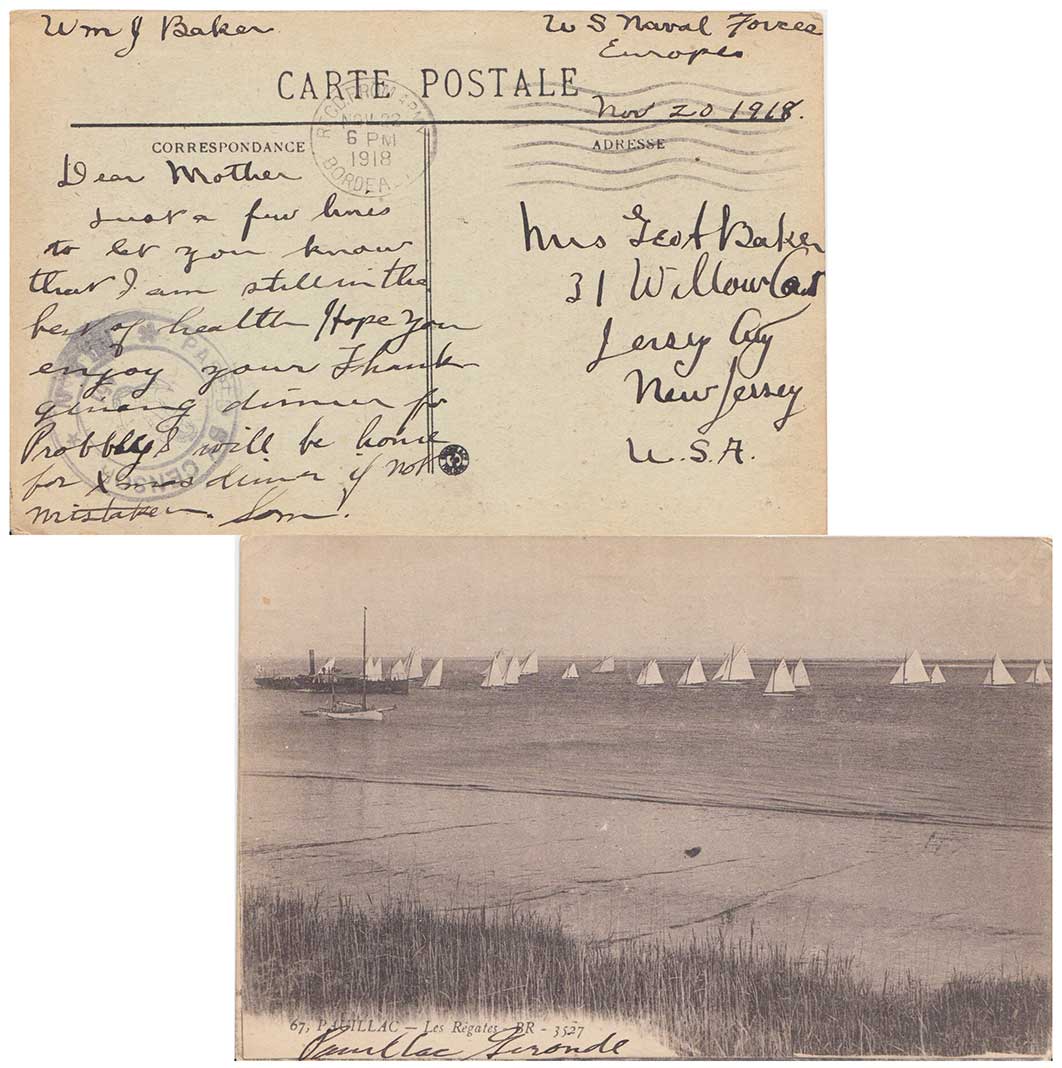 Wm J Baker
U S Naval Forces
Europe
CARTE POSTALE
Nov 20 1918.
NOV 22
6 PM
1918
BORDEA
CORRESPONDANCE
ADRESSE
Dear Mother
Just a few lines
to let you know
that I am still in the
best of health Hope you
enjoy your Thanks
giving dinner for
Probbly I will be home
for Xmas dinner if not
mistaken. Son.
PASSED BY CENSOR
Mrs Geo A Baker
31 Willow
Jersey City
New Jersey
U.S.A.
67, PAUILLAC — Les Régates - BR - 3527
Pauillac Gironde